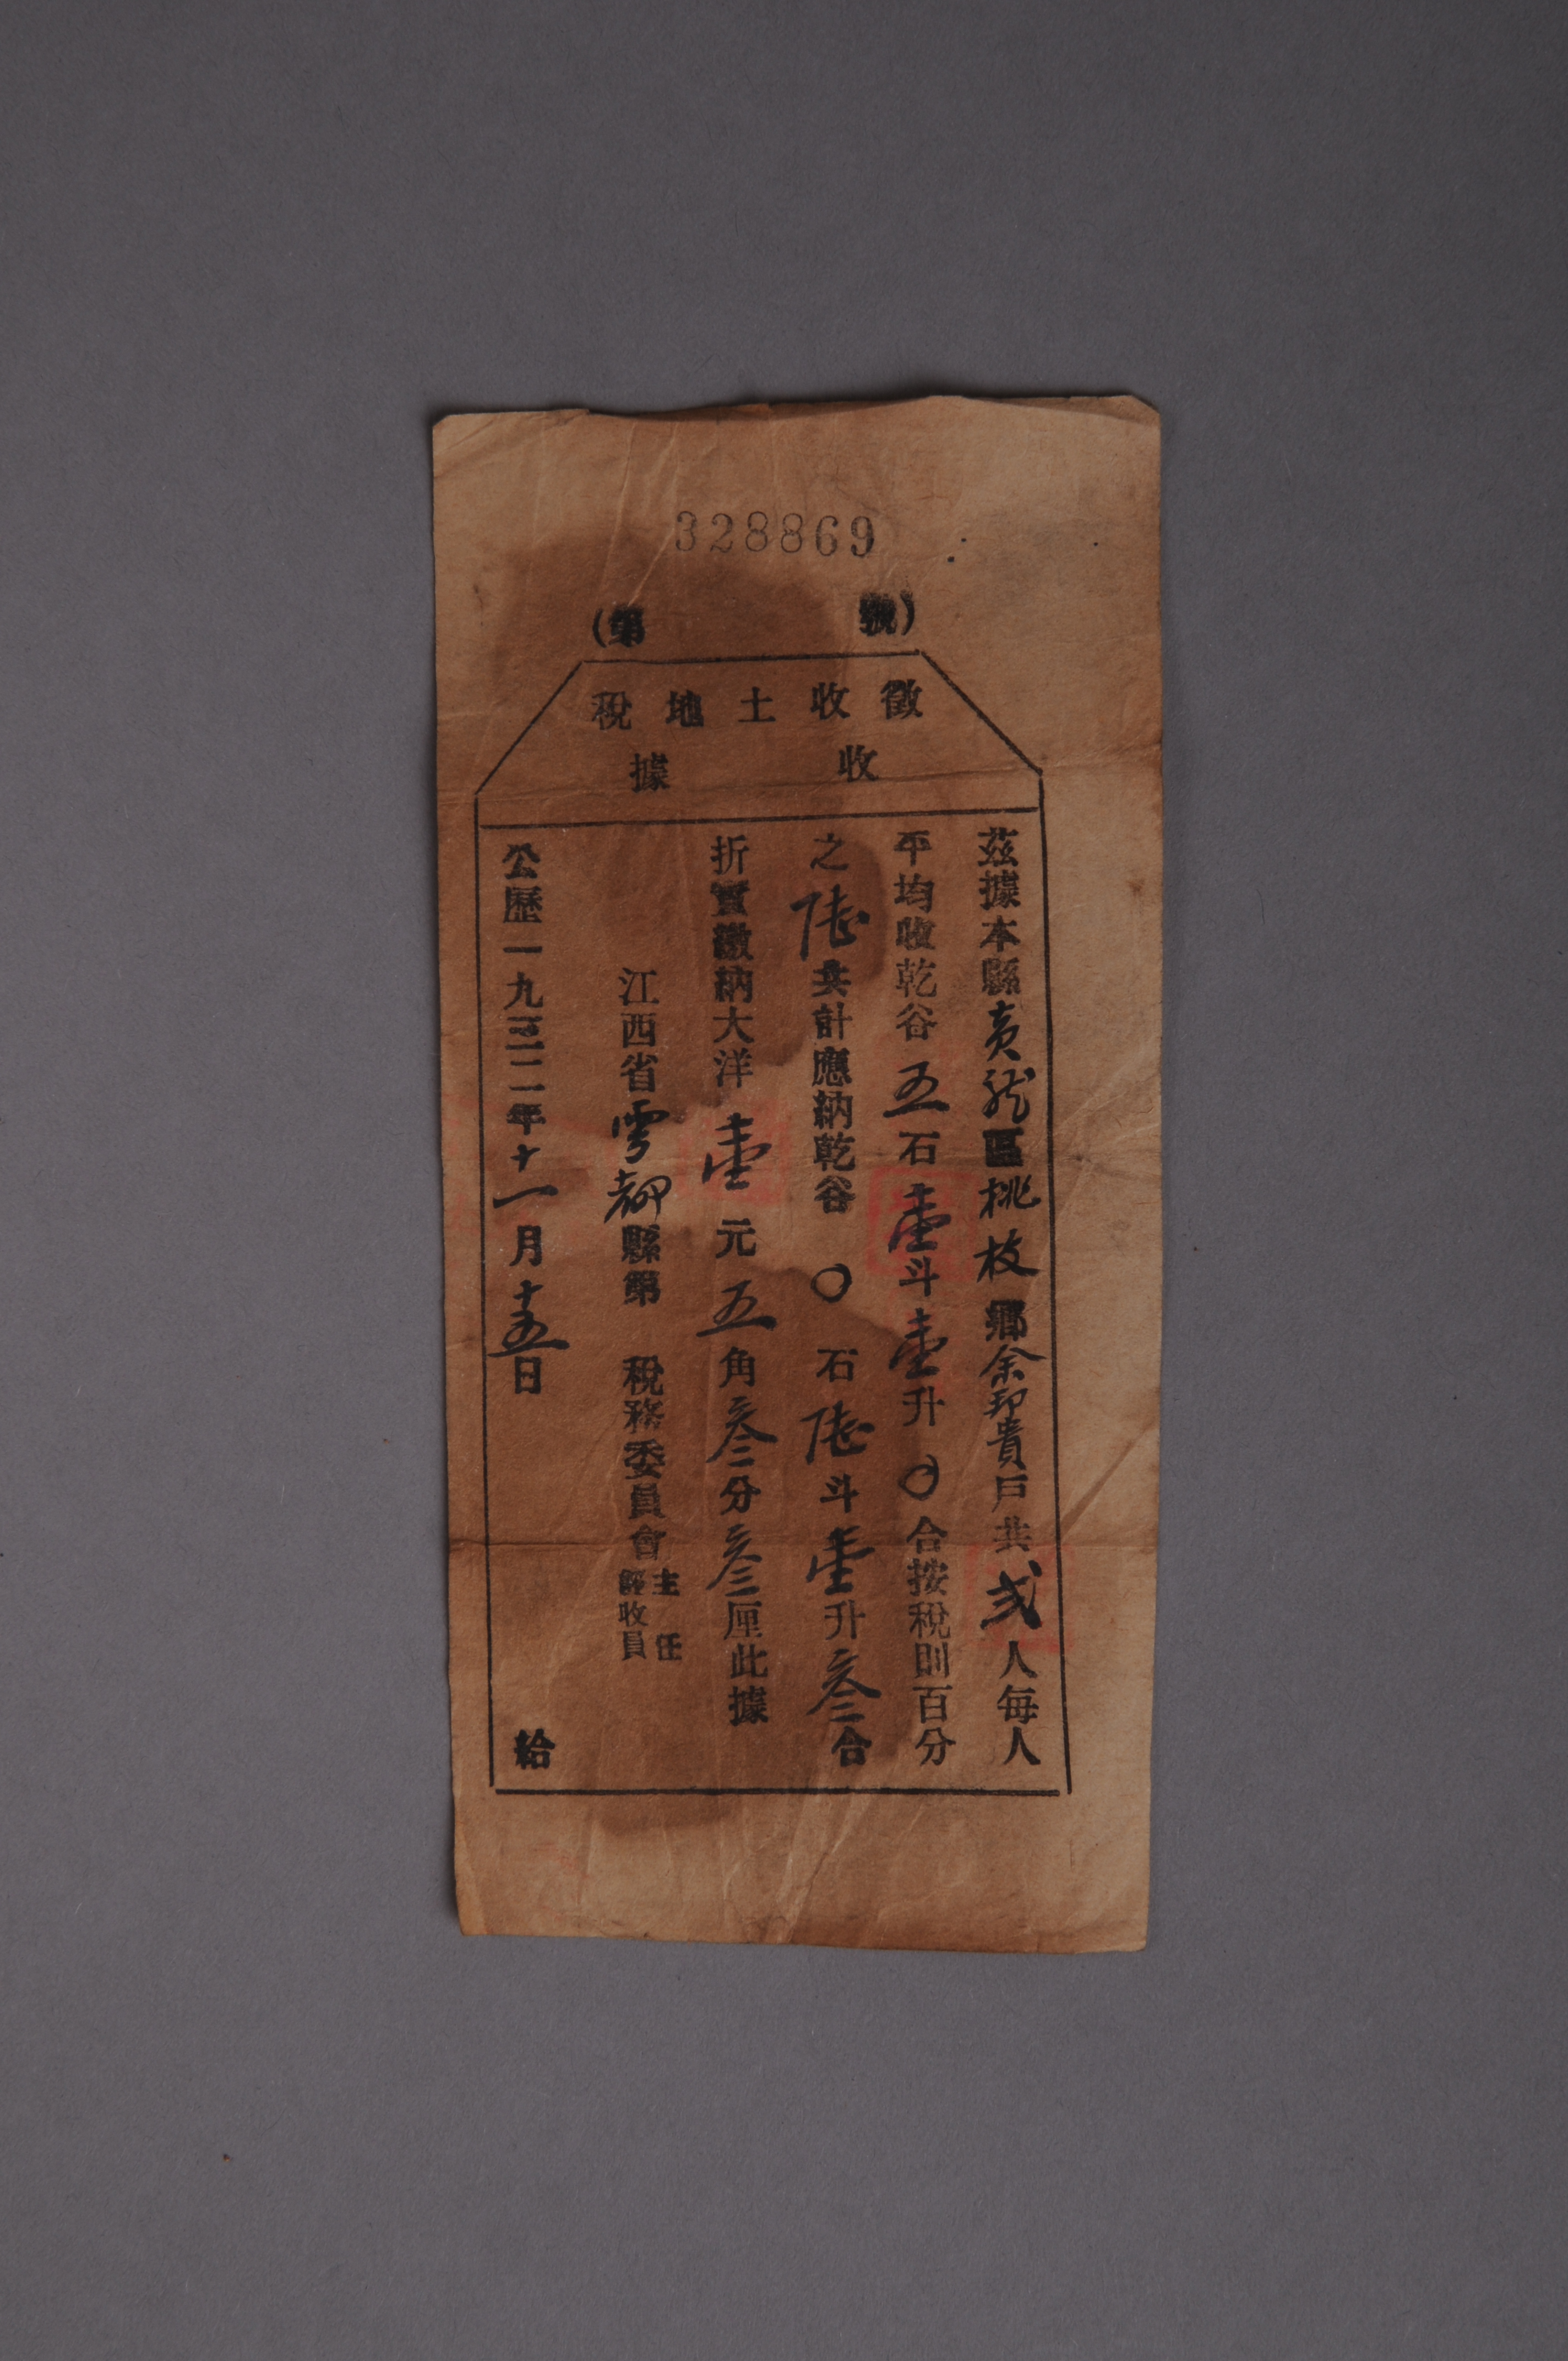 328869
(第 號)
徵收土地稅
收據
茲據本縣黃龍區桃枝鄉余邦貴戶共弍人每人
平均收乾谷五石壹斗壹升〇合按稅則百分
之陸共計應納乾谷〇石陸斗壹升叁合
折實繳納大洋壹元五角叁分叁厘此據
江西省雩都縣第 稅務委員會主任
經收員
公歷一九三二年十一月十五日
給